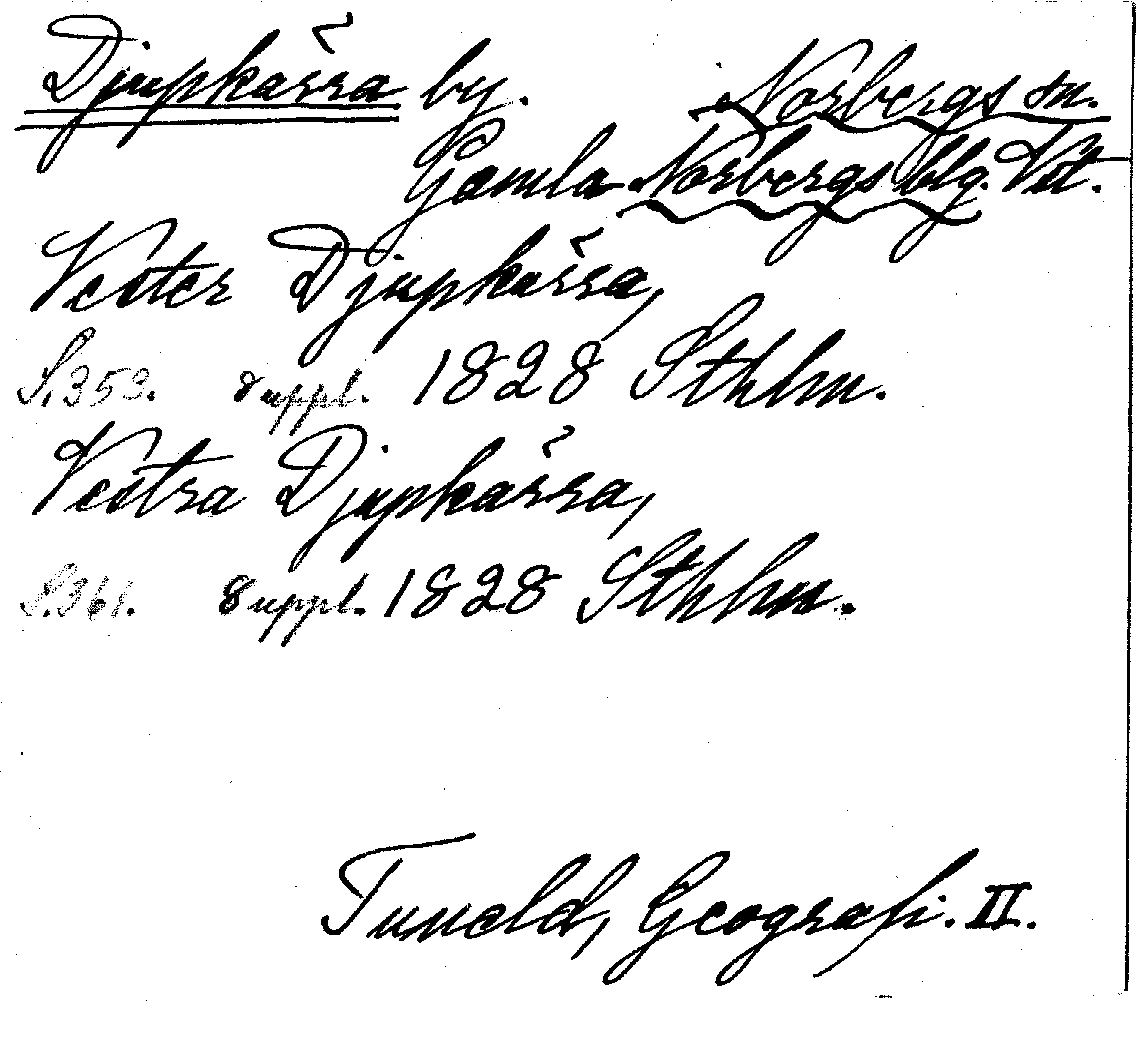 Djupkärra by. Norbergs sn.
Gamla Norbergs blg. Vstl.
Vester Djupkärra,
S. 353. Suppl. 1828 Sthlm.
Vestra Djupkärra,
S. 361. Suppl. 1828 Sthlm.
Tuneld, Geografi. II.